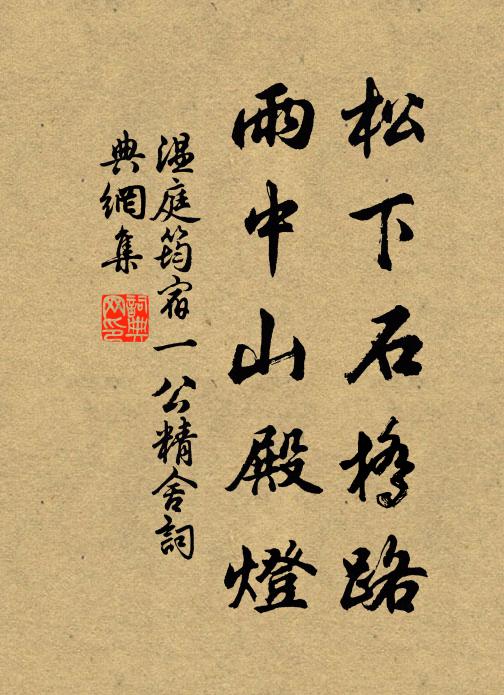 松下石橋路
雨中山殿燈
溫庭筠宿一公精舍詞
典網集
詞典网印